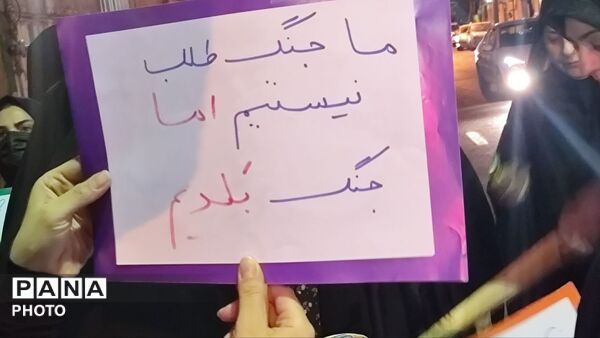 ما جنگ طلب
نیستیم اما
جنگ بَلدیم
PANA
PHOTO